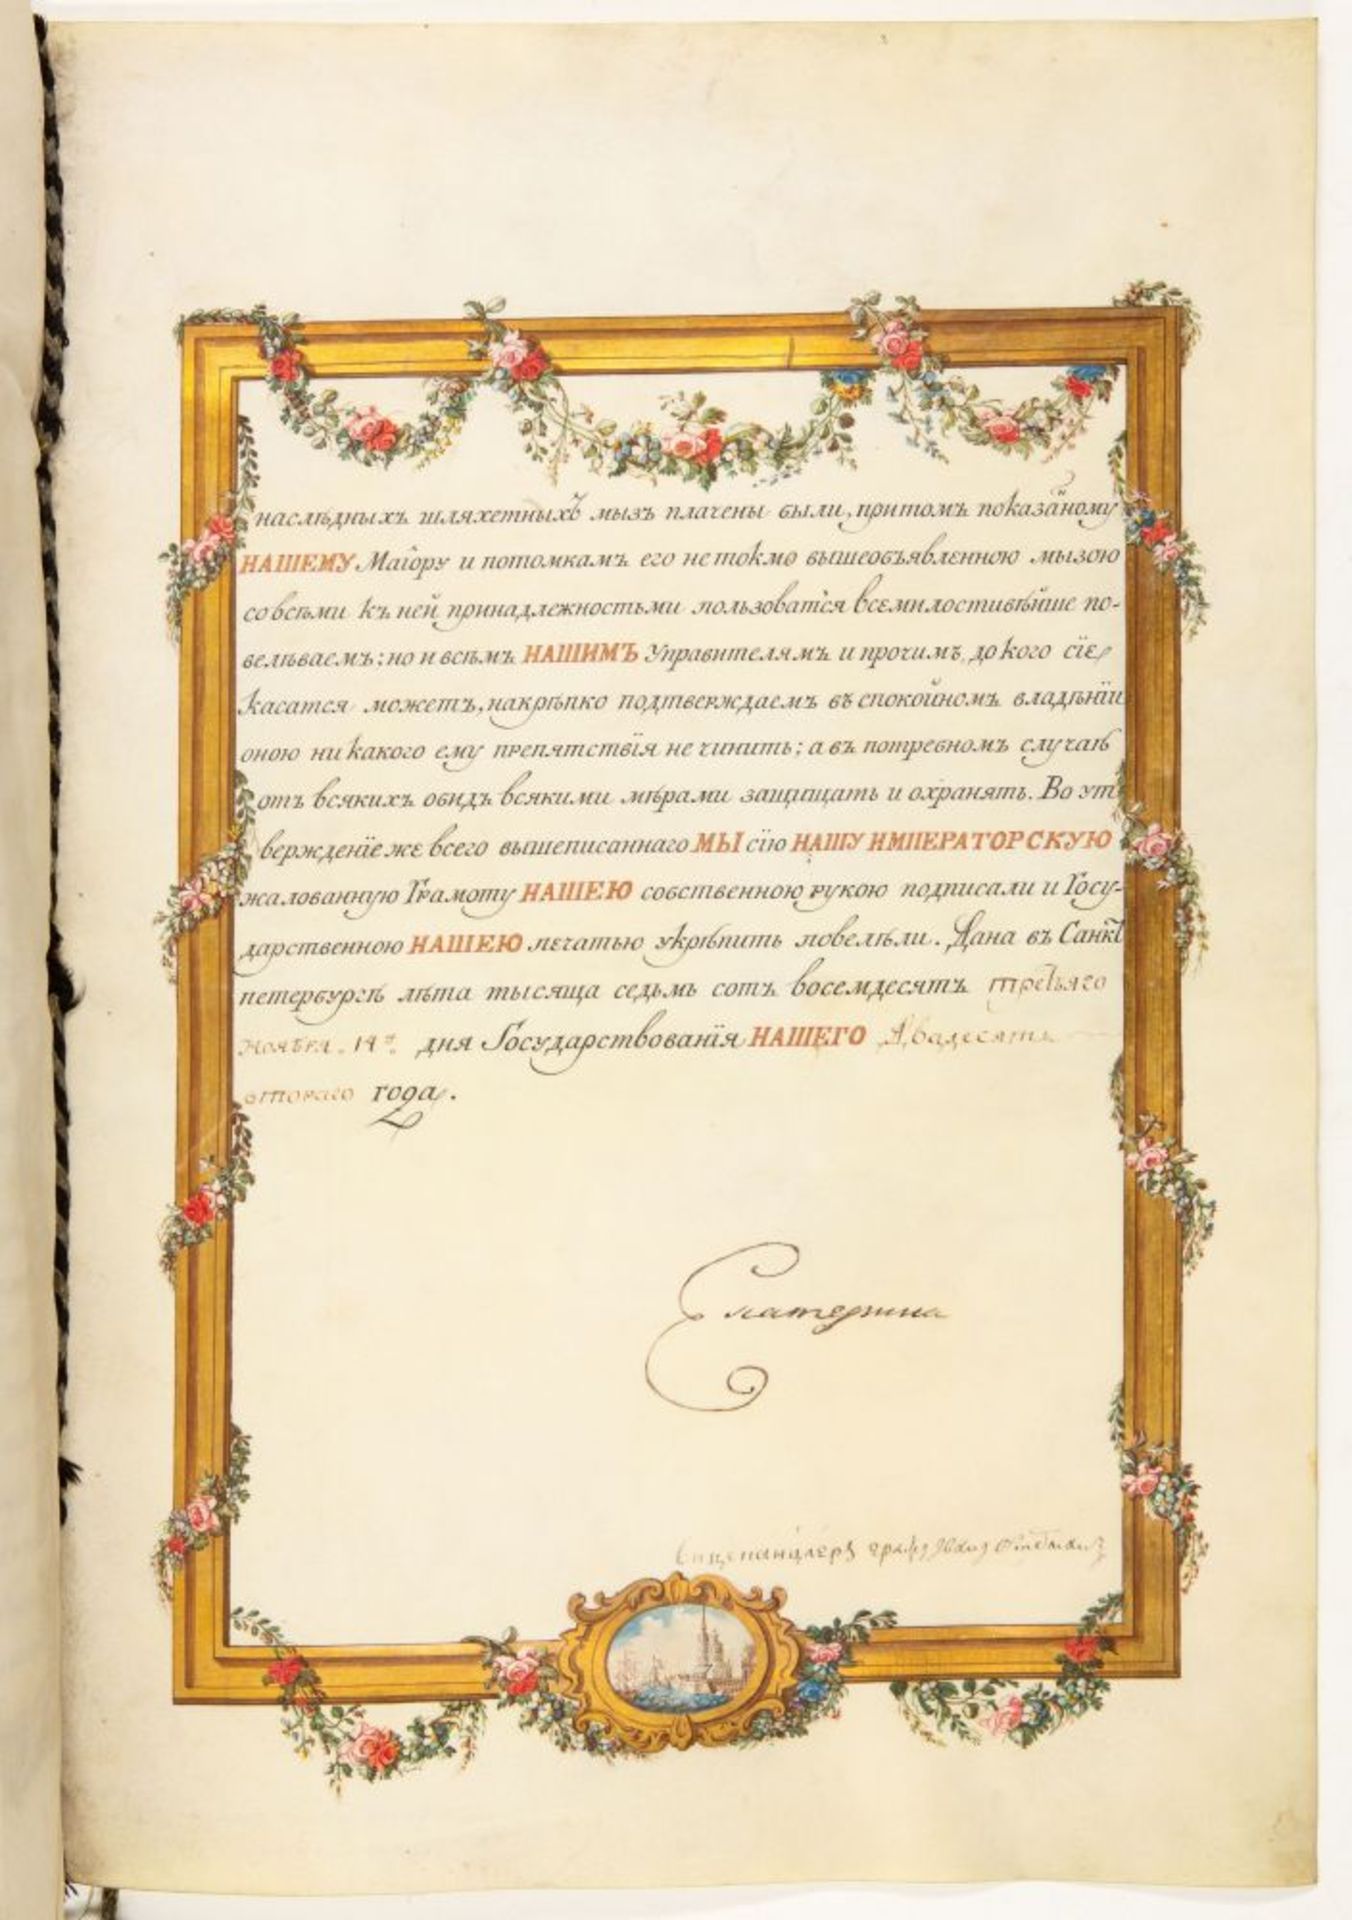 наслѣдныхъ шляхетныхъ мызъ плачены были, притомъ показаному
НАШЕМУ Маіору и потомкамъ его не токмо вышеобъявленною мызою
со всѣми къ ней принадлежностьми пользоватся всемилостивѣйше по-
велѣваемъ: но и всѣмъ НАШИМЪ Управителямъ и прочимъ, до кого сіе
касатся можетъ, накрѣпко подтверждаемъ въ спокойномъ владѣніи
оною никакого ему препятствія не чинить; а въ потребномъ случаѣ
отъ всякихъ обидъ всякими мѣрами защищать и охранять. Во ут
вержденіе же всего вышеписаннаго МЫ сію НАШУ ИМПЕРАТОРСКУЮ
жалованную Грамоту НАШЕЮ собственною рукою подписали и Госу-
дарственною НАШЕЮ печатью укрѣпить повелѣли. Дана въ Санкт
петербургѣ лѣта тысяща седьмь сотъ восемдесятъ третьяго
ноября 14го дня Государствованія НАШЕГО Двадесять
втораго года.
Екатерина
Вицеканцлеръ графъ Иванъ Остерманъ